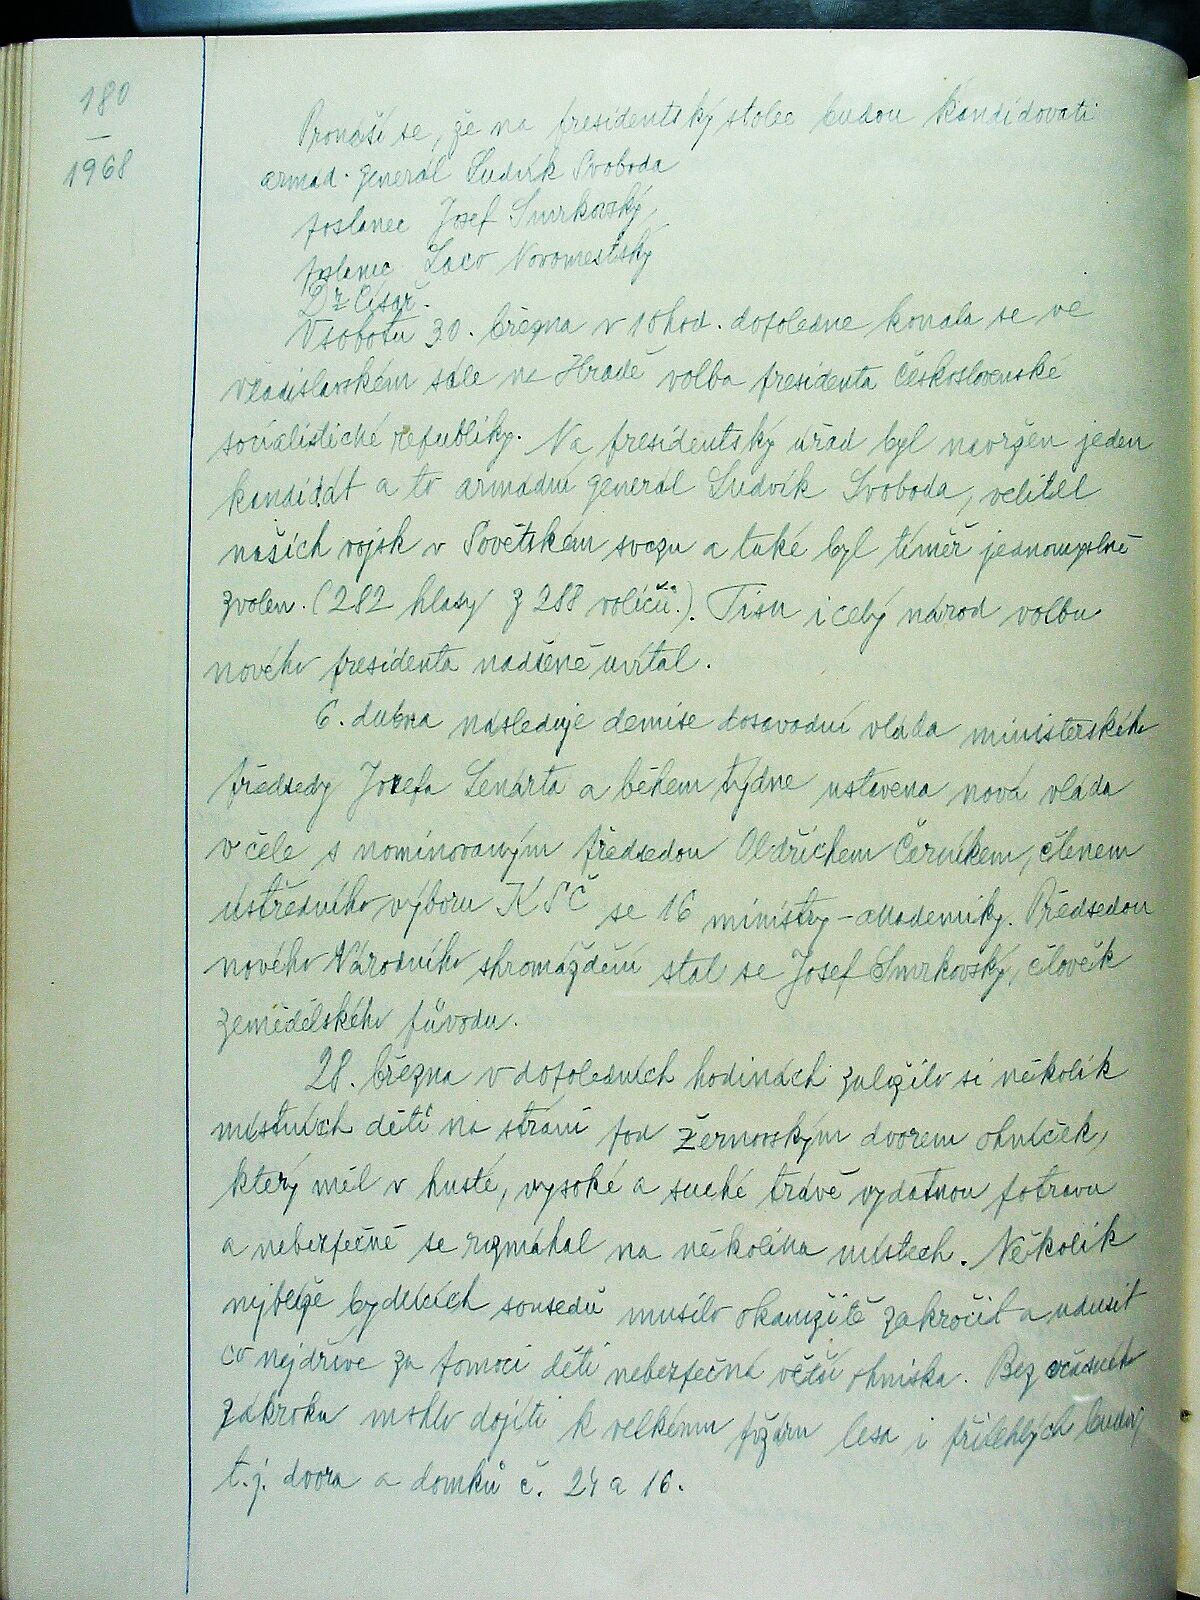 180
—
1968
Pronáší se, že na presidentský stolec budou kandidovati
armád. generál Ludvík Svoboda
poslanec Josef Smrkovský
poslanec Laco Novomeský
Dr Císař.
V sobotu 30. března v 10 hod. dopoledne konala se ve
Vladislavském sále na Hradě volba presidenta Československé
socialistické republiky. Na presidentský úřad byl navržen jeden
kandidát a to armádní generál Ludvík Svoboda, velitel
našich vojsk v Sovětském svazu a také byl téměř jednomyslně
zvolen. (282 hlasy z 288 voličů.). Tisk i celý národ volbu
nového presidenta nadšeně uvítal.
6. dubna následuje demise dosavadní vláda ministerského
předsedy Jozefa Lenárta a během týdne ustavena nová vláda
v čele s nominovaným předsedou Oldřichem Černíkem, členem
ústředního výboru KSČ se 16 ministry – akademiky. Předsedou
nového Národního shromáždění stal se Josef Smrkovský, člověk
zemědělského původu.
28. března v dopoledních hodinách založilo si několik
místních dětí na stráni pod Žernovským dvorem ohníček,
který měl v husté, vysoké a suché trávě vydatnou potravu
a nebezpečně se rozmáhal na několika místech. Několik
nejblíže bydlících sousedů musilo okamžitě zakročit a udusit
co nejdříve za pomoci dětí nebezpečná větší ohniska. Bez včasného
zákroku mohlo dojíti k velkému požáru lesa i přilehlých budov
t.j. dvora a domků č. 24 a 16.